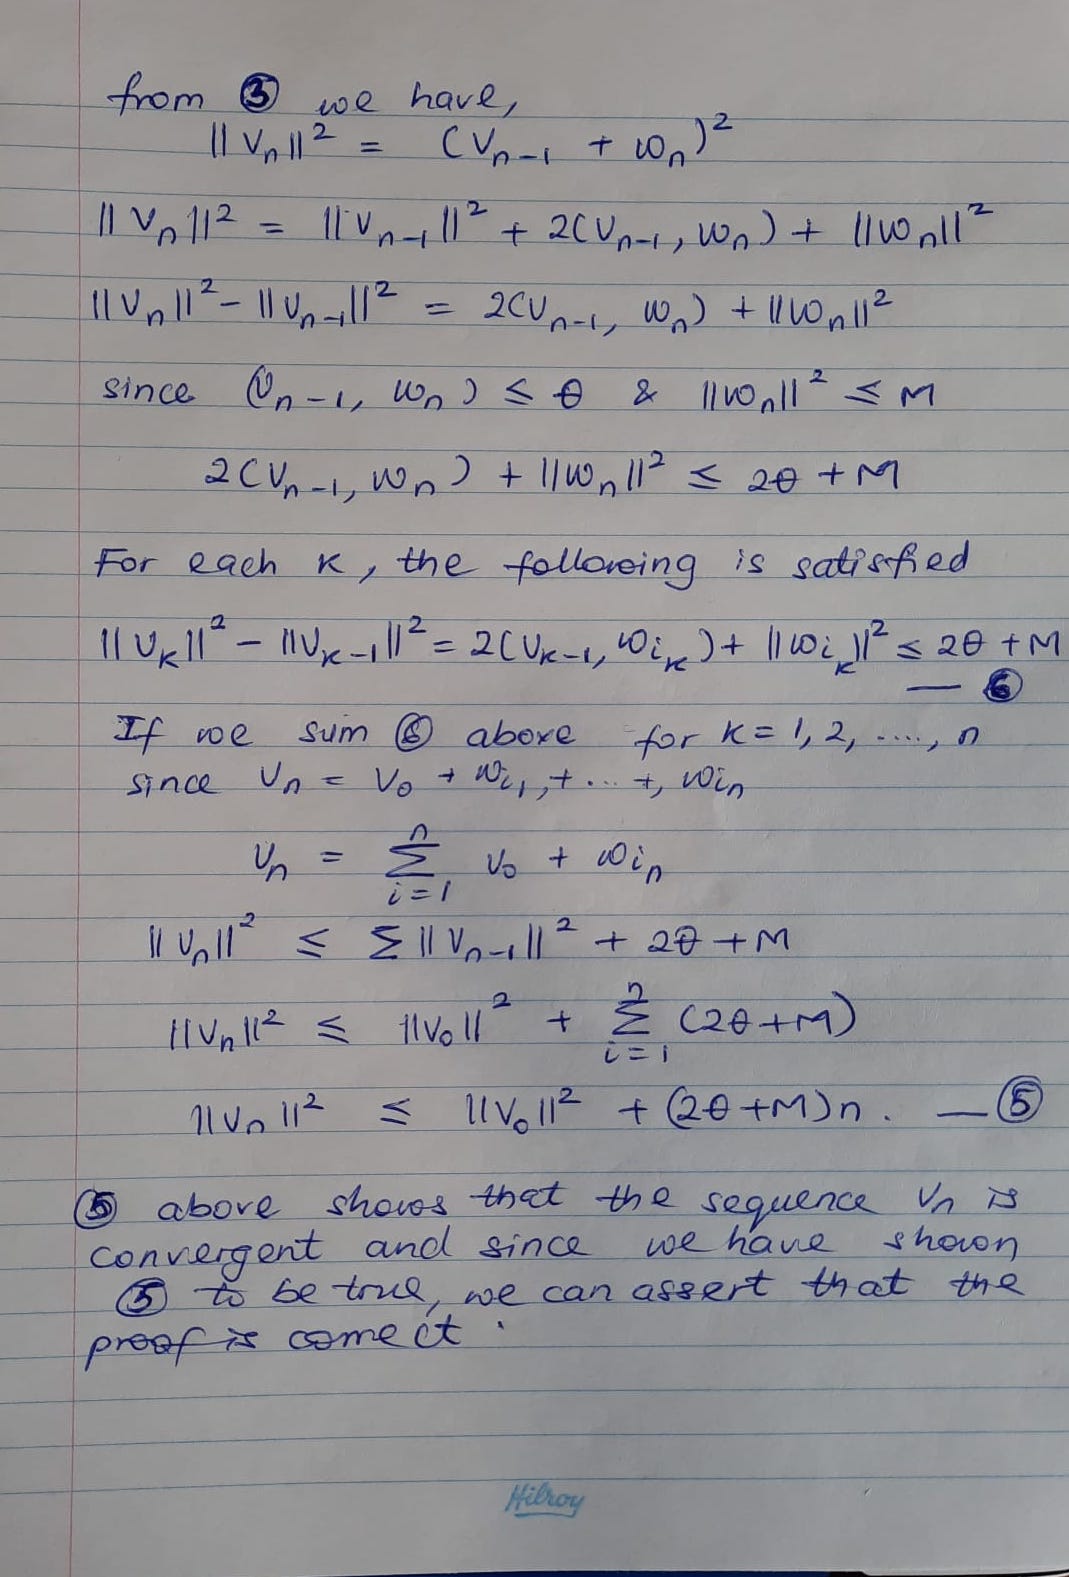 from ③ we have,
||Vn||² = (Vn-1 + wn)²
||Vn||² = ||Vn-1||² + 2(Vn-1, wn) + ||wn||²
||Vn||² - ||Vn-1||² = 2(Vn-1, wn) + ||wn||²
since (Vn-1, wn) ≤ θ & ||wn||² ≤ M
2(Vn-1, wn) + ||wn||² ≤ 2θ + M
For each k, the following is satisfied
||Vk||² - ||Vk-1||² = 2(Vk-1, wik) + ||wik||² ≤ 2θ + M
— ⑥
If we sum ⑥ above for k = 1, 2, ...., n
since Vn = V0 + wi1, + ... +, win
Vn = n Σ i=1 V0 + win
||Vn||² ≤ Σ ||Vn-1||² + 2θ + M
||Vn||² ≤ ||V0||² + n Σ i=1 (2θ + M)
||Vn||² ≤ ||V0||² + (2θ + M)n. — ⑤
⑤ above shows that the sequence Vn is
convergent and since we have shown
⑤ to be true, we can assert that the
proof is correct.
Hilroy